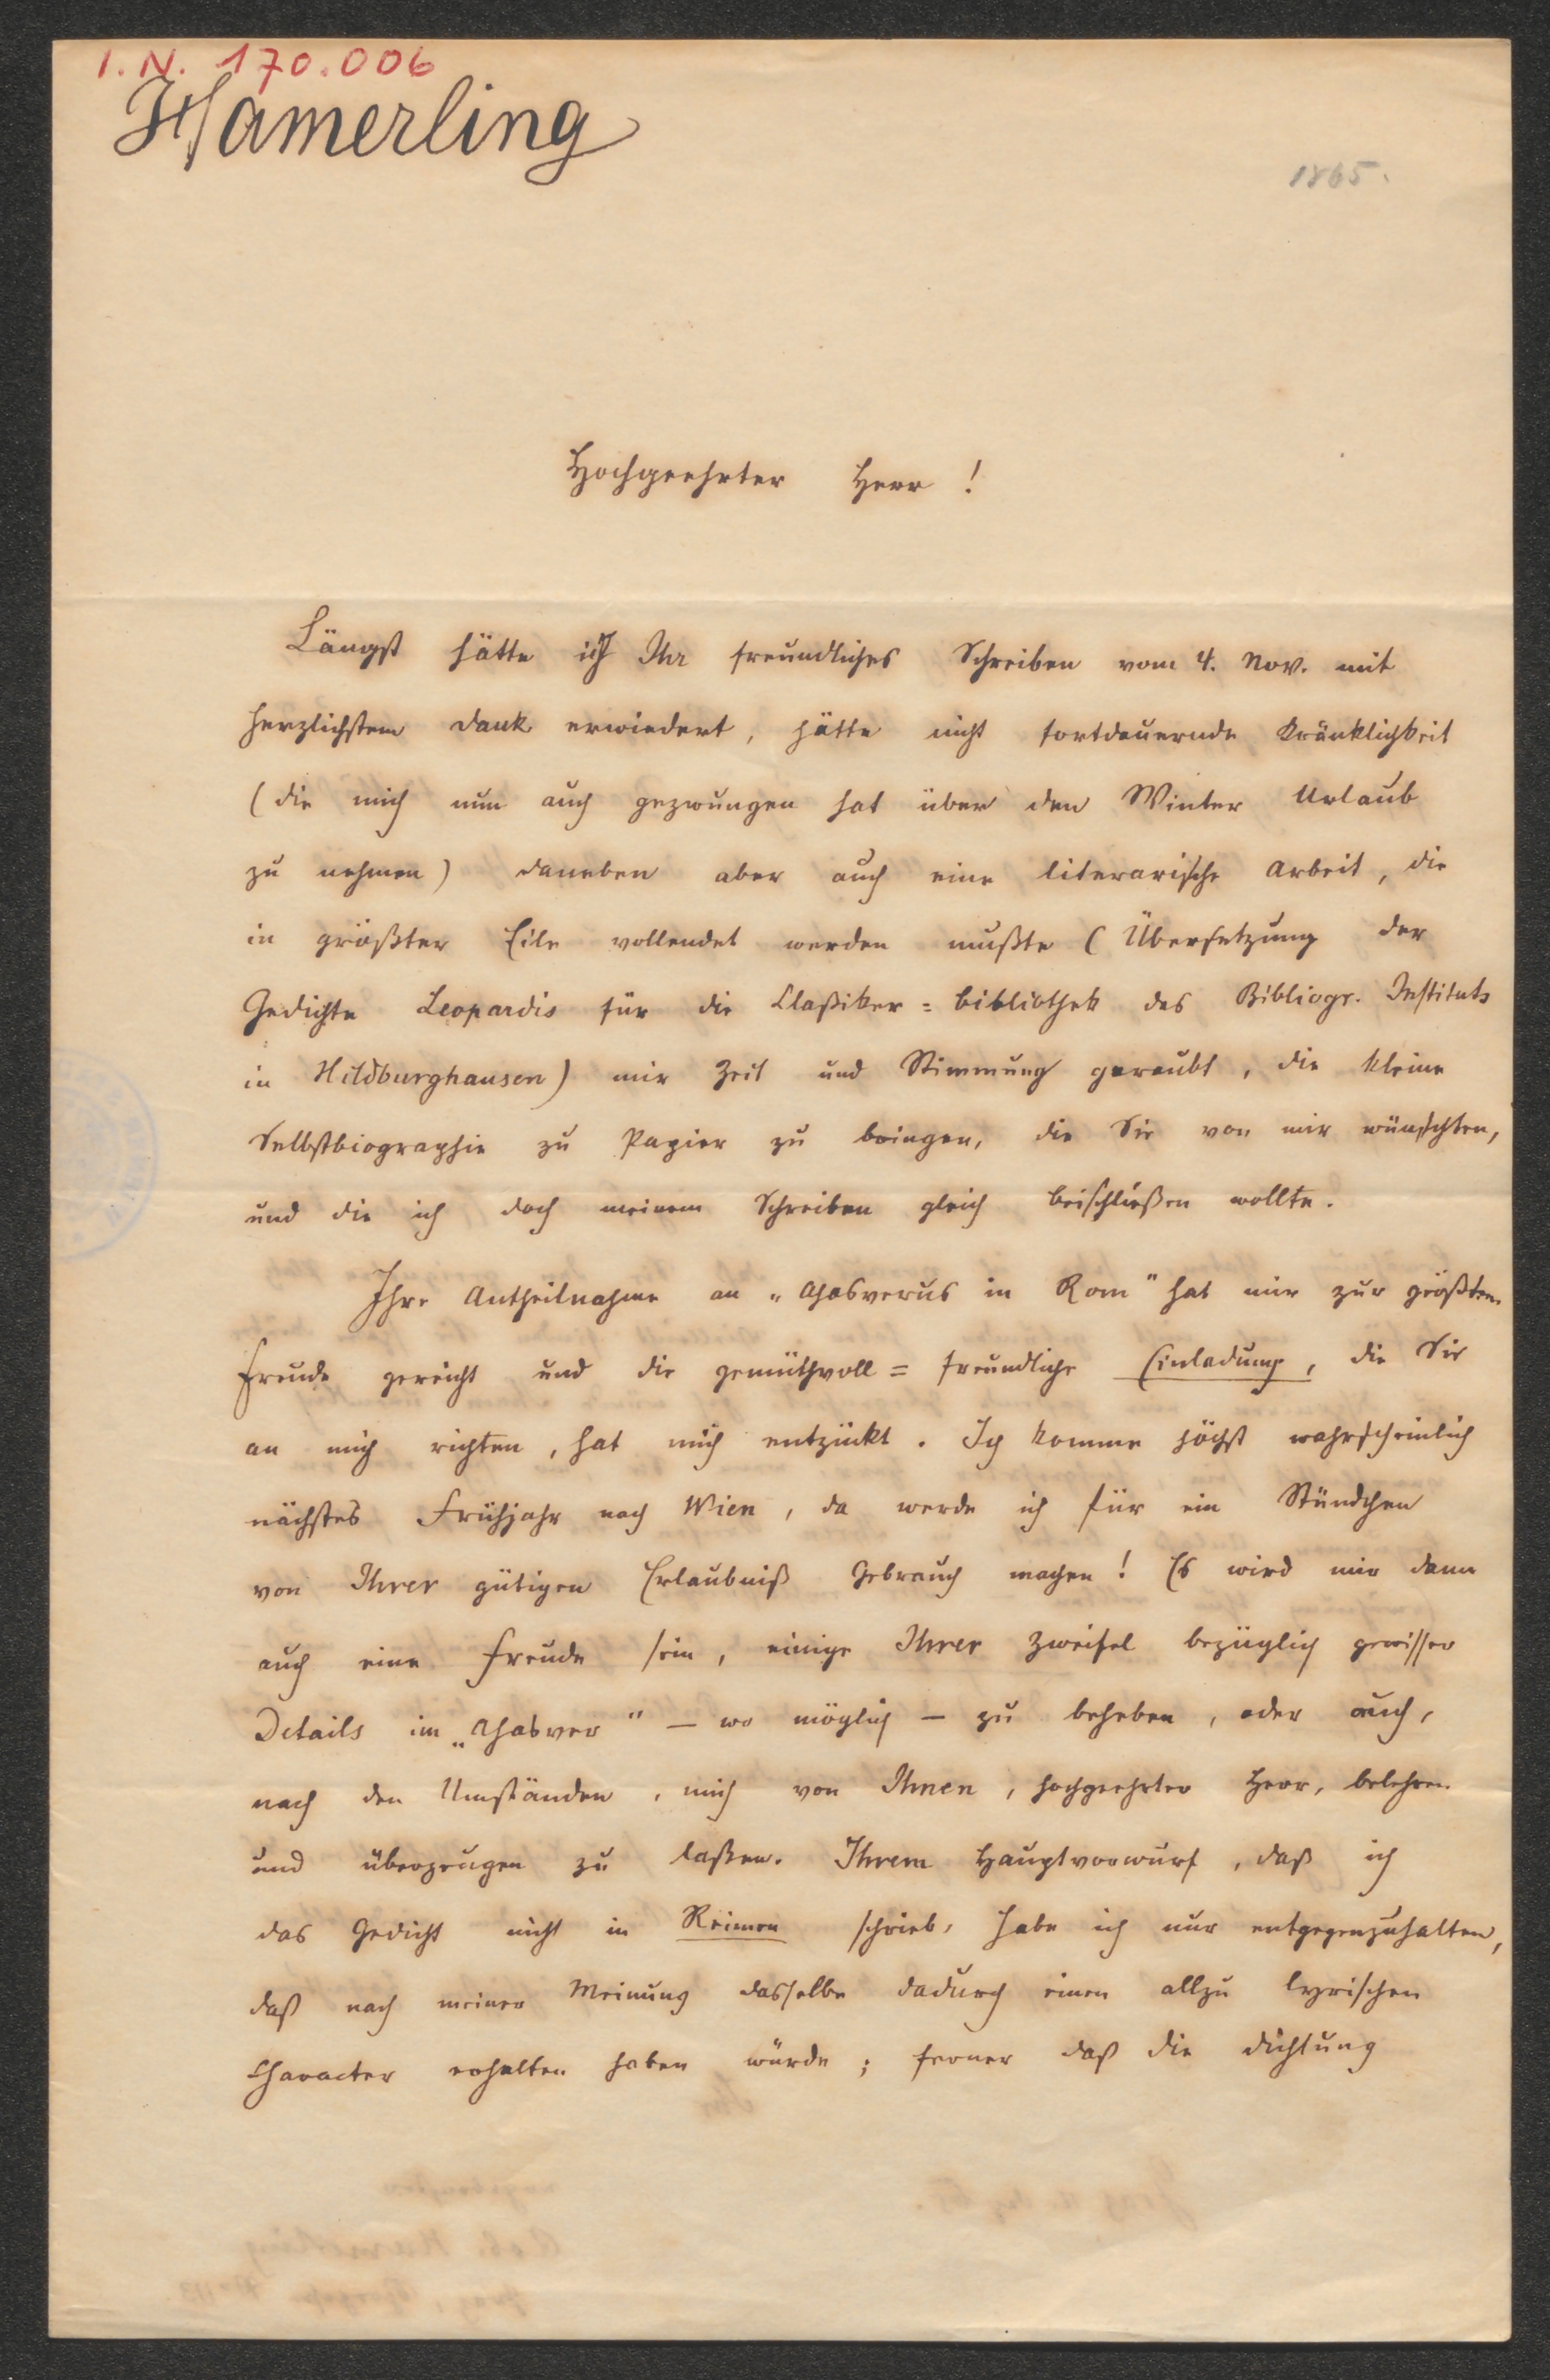 I.N. 170.006
Hamerling
1865.
Hochgeehrter Herr !
Längst hätte ich Ihr freundliches Schreiben vom 4. Nov. mit
herzlichstem Dank erwiedert, hätte nicht fortdauernde Kränklichkeit
(die mich nun auch gezwungen hat über den Winter Urlaub
zu nehmen) daneben aber auch eine literarische Arbeit, die
in größter Eile vollendet werden mußte (Übersetzung der
Gedichte Leopardis für die Claßiker=bibliothek des Bibliogr. Instituts
in Hildburghausen) mir Zeit und Stimmung geraubt, die kleine
Selbstbiographie zu Papier zu bringen, die Sie von mir wünschten,
und die ich doch meinem Schreiben gleich beischließen wollte.
Ihre Antheilnahme an „Ahasverus in Rom" hat mir zur größten
Freude gereicht und die gemüthvoll=freundliche Einladung, die Sie
an mich richten, hat mich entzückt. Ich komme höchst wahrscheinlich
nächstes Frühjahr nach Wien, da werde ich für ein Stündchen
von Ihrer gütigen Erlaubniß Gebrauch machen! Es wird mir dann
auch eine Freude sein, einige Ihrer Zweifel bezüglich gewisser
Details im „Ahasver" – wo möglich – zu beheben, oder auch,
nach den Umständen, mich von Ihnen, hochgeehrter Herr, belehren
und überzeugen zu laßen. Ihrem Hauptvorwurf, daß ich
das Gedicht nicht in Reimen schrieb, habe ich nur entgegenzuhalten,
daß nach meiner Meinung dasselbe dadurch einen allzu lyrischen
Character erhalten haben würde; ferner daß die Dichtung